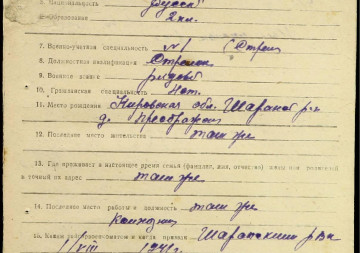 5. Национальность русский
6. Образование 2 кл.
7. Военно-учетная специальность №1 (Стрел
8. Должностная квалификация Стрелок
9. Воинское звание рядовой
10. Гражданская специальность Нет.
11. Место рождения Кировская обл. Шаранг р-н
д. Преображен
12. Последнее место жительства там же
13. Где проживают в настоящее время семья (фамилия, имя, отчество) жены или родителей
и точный их адрес там же
14. Последнее место работы и должность там же
колхозник
15. Каким райвоенкоматом и когда призван Шарангским рвк
VIII 1941г.